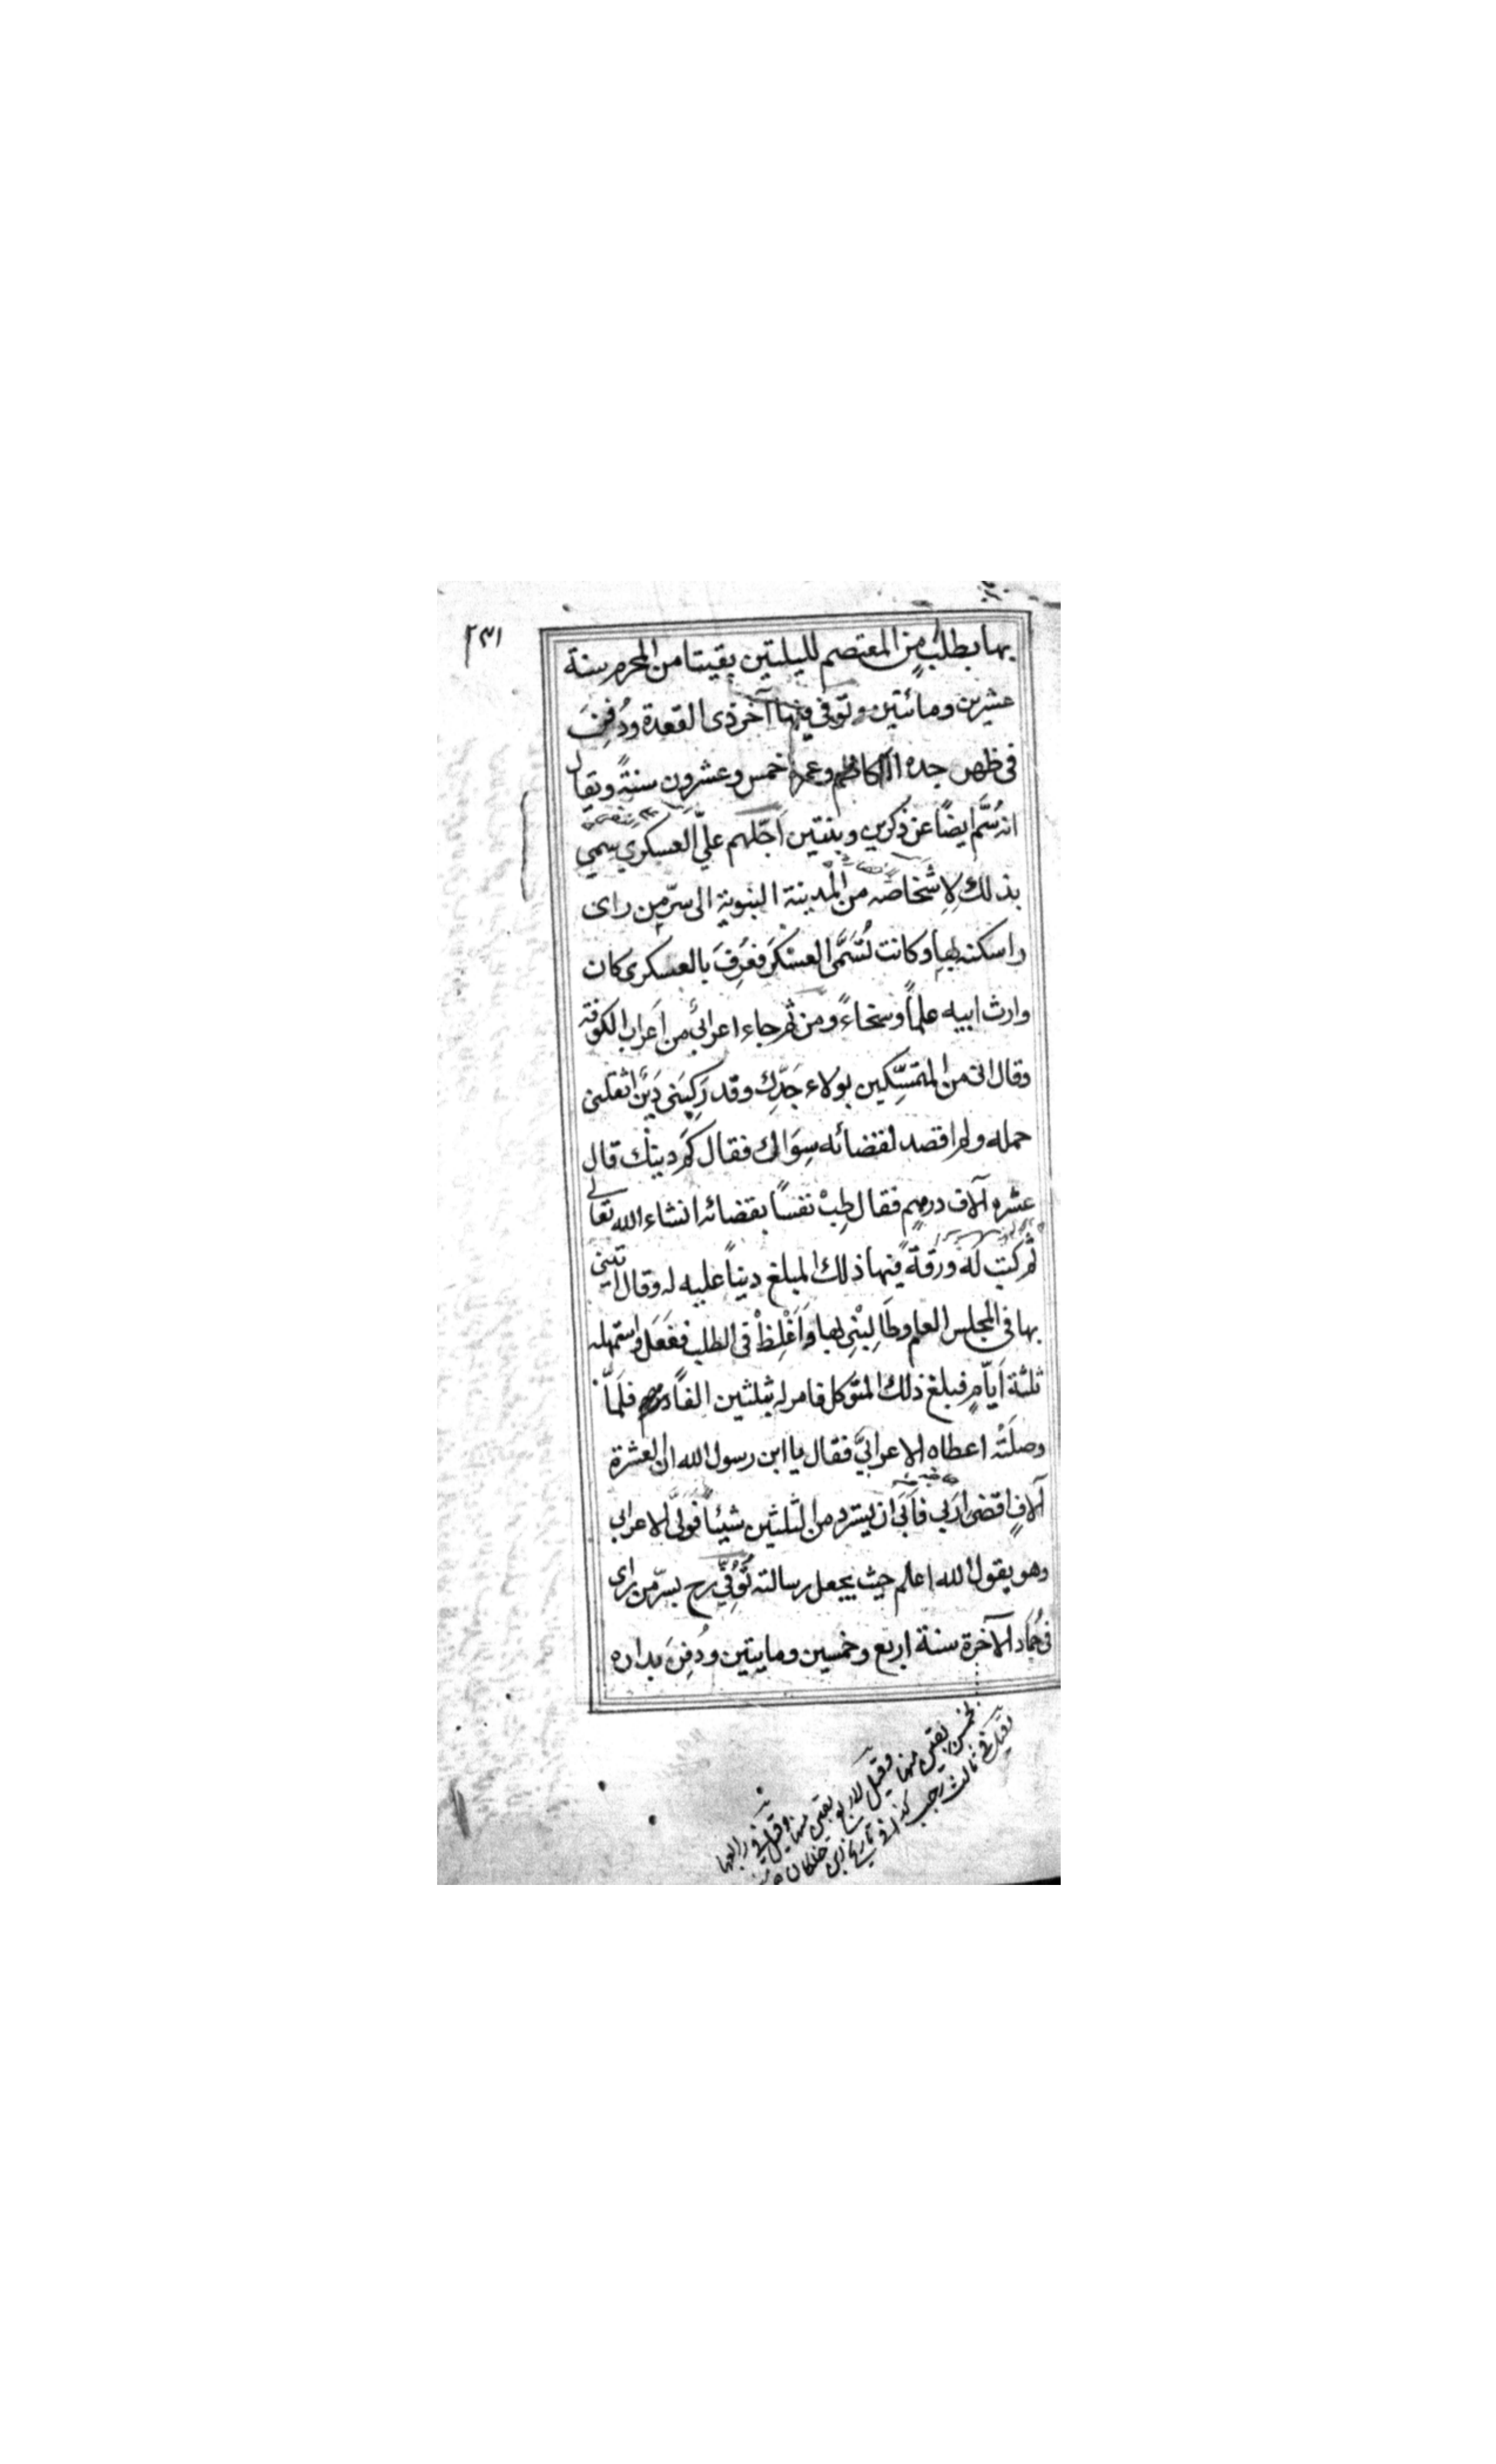 ٢٣١
بها بطلب من المعتصم لليلتين بقيتا من المحرم سنة
عشرين ومائتين وتوفي فيها آخر ذى القعدة ودُفِنَ
فى ظهر جده الكاظم وعمره خمس وعشرون سنةً ويقال
انه سُمَّ ايضًا عن ذكرين وبنتين اَجَلّهم عليّ العسكري سمي
بذلك لِاِشخاصه من المدينة النبوية الى سرّ من راى
واسكنه بها وكانت تُسَمَّى العسْكَر فعُرِفَ بالعسكرى كان
وارث ابيه علماً وسخاءً ومن ثم جاء اعرابيٌ من اَعراب الكوفة
وقال انى من المتمسِّكين بولاء جَدِّك وقد رَكِبَنى دَينٌ اثقلنى
حمله ولم اقصد لقضائه سِوَاك فقال كم دينك قال
عشره آلاف درهم فقال طِبْ نفساً بقضائه انشاء الله تعالى
ثم كتب له ورقةً فيها ذلك المبلغ ديناً عليه له وقال ايتنى
بها فى المجلس العام وطَالِبْنِى بها وَاَغْلِظْ فى الطلب ففَعَل واستمهله
ثلثة اَيّامٍ فبلغ ذلك المتوكل فامر له بثلثين الفاً درهم فلَمّا
وصلَتْه اعطاه الاعرابيَّ فقال يا ابن رسول الله ان العشرة
آلافٍ اقضى اربى فاَبَى ان يسترد من الثلثين شيئاً فَوَلَّى الاعرابى
وهو يقول الله اعلم حيث يجعل رسالته تُوُفِّيَ رح بسرّ من راى
فى جُماد الآخرة سنة اربع وخمسين ومايتين ودُفِنَ بداره
لخمس بقين منها وقيل لاربع بقين منها وقيل فى رابعها
وقيل فى ثالث رجب كذا فى تاريخ ابن خلكان